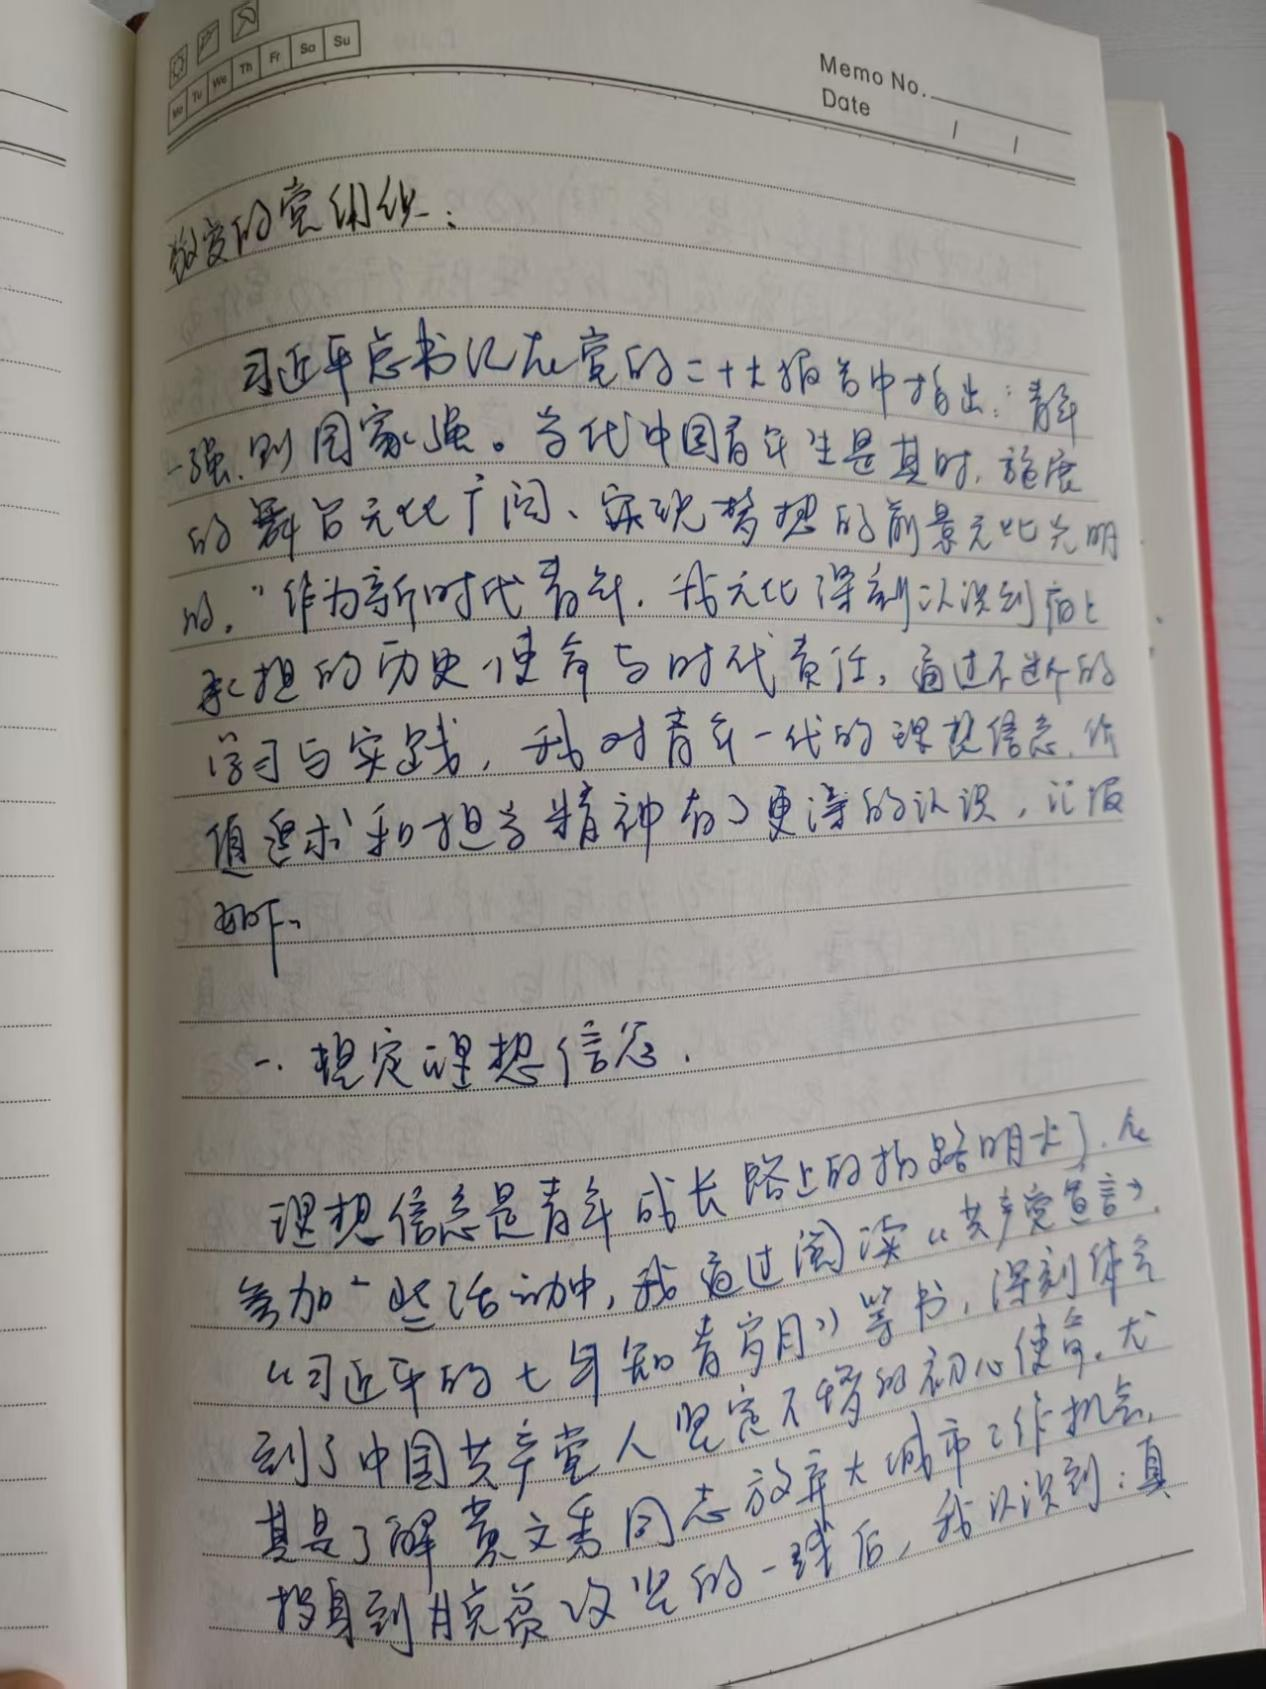 Mo Tu We Th Fr Sa Su
Memo No.
Date / /
敬爱的党组织:
习近平总书记在党的二十大报告中指出:"青年
强,则国家强。当代中国青年生是其时,施展
的舞台无比广阔、实现梦想的前景无比光明
的。"作为新时代青年,我无比深刻认识到肩上
承担的历史使命与时代责任,通过不断的
学习与实践,我对青年一代的理想信念、价
值追求和担当精神有了更深的认识,汇报
如下。
一.坚定理想信念.
理想信念是青年成长路上的指路明灯.在
参加一些活动中,我通过阅读《共产党宣言》、
《习近平的七年知青岁月》等书,深刻体会
到了中国共产党人坚定不移的初心使命。尤
其是了解黄文秀同志放弃大城市工作机会,
投身到脱贫攻坚的一线后,我认识到:真